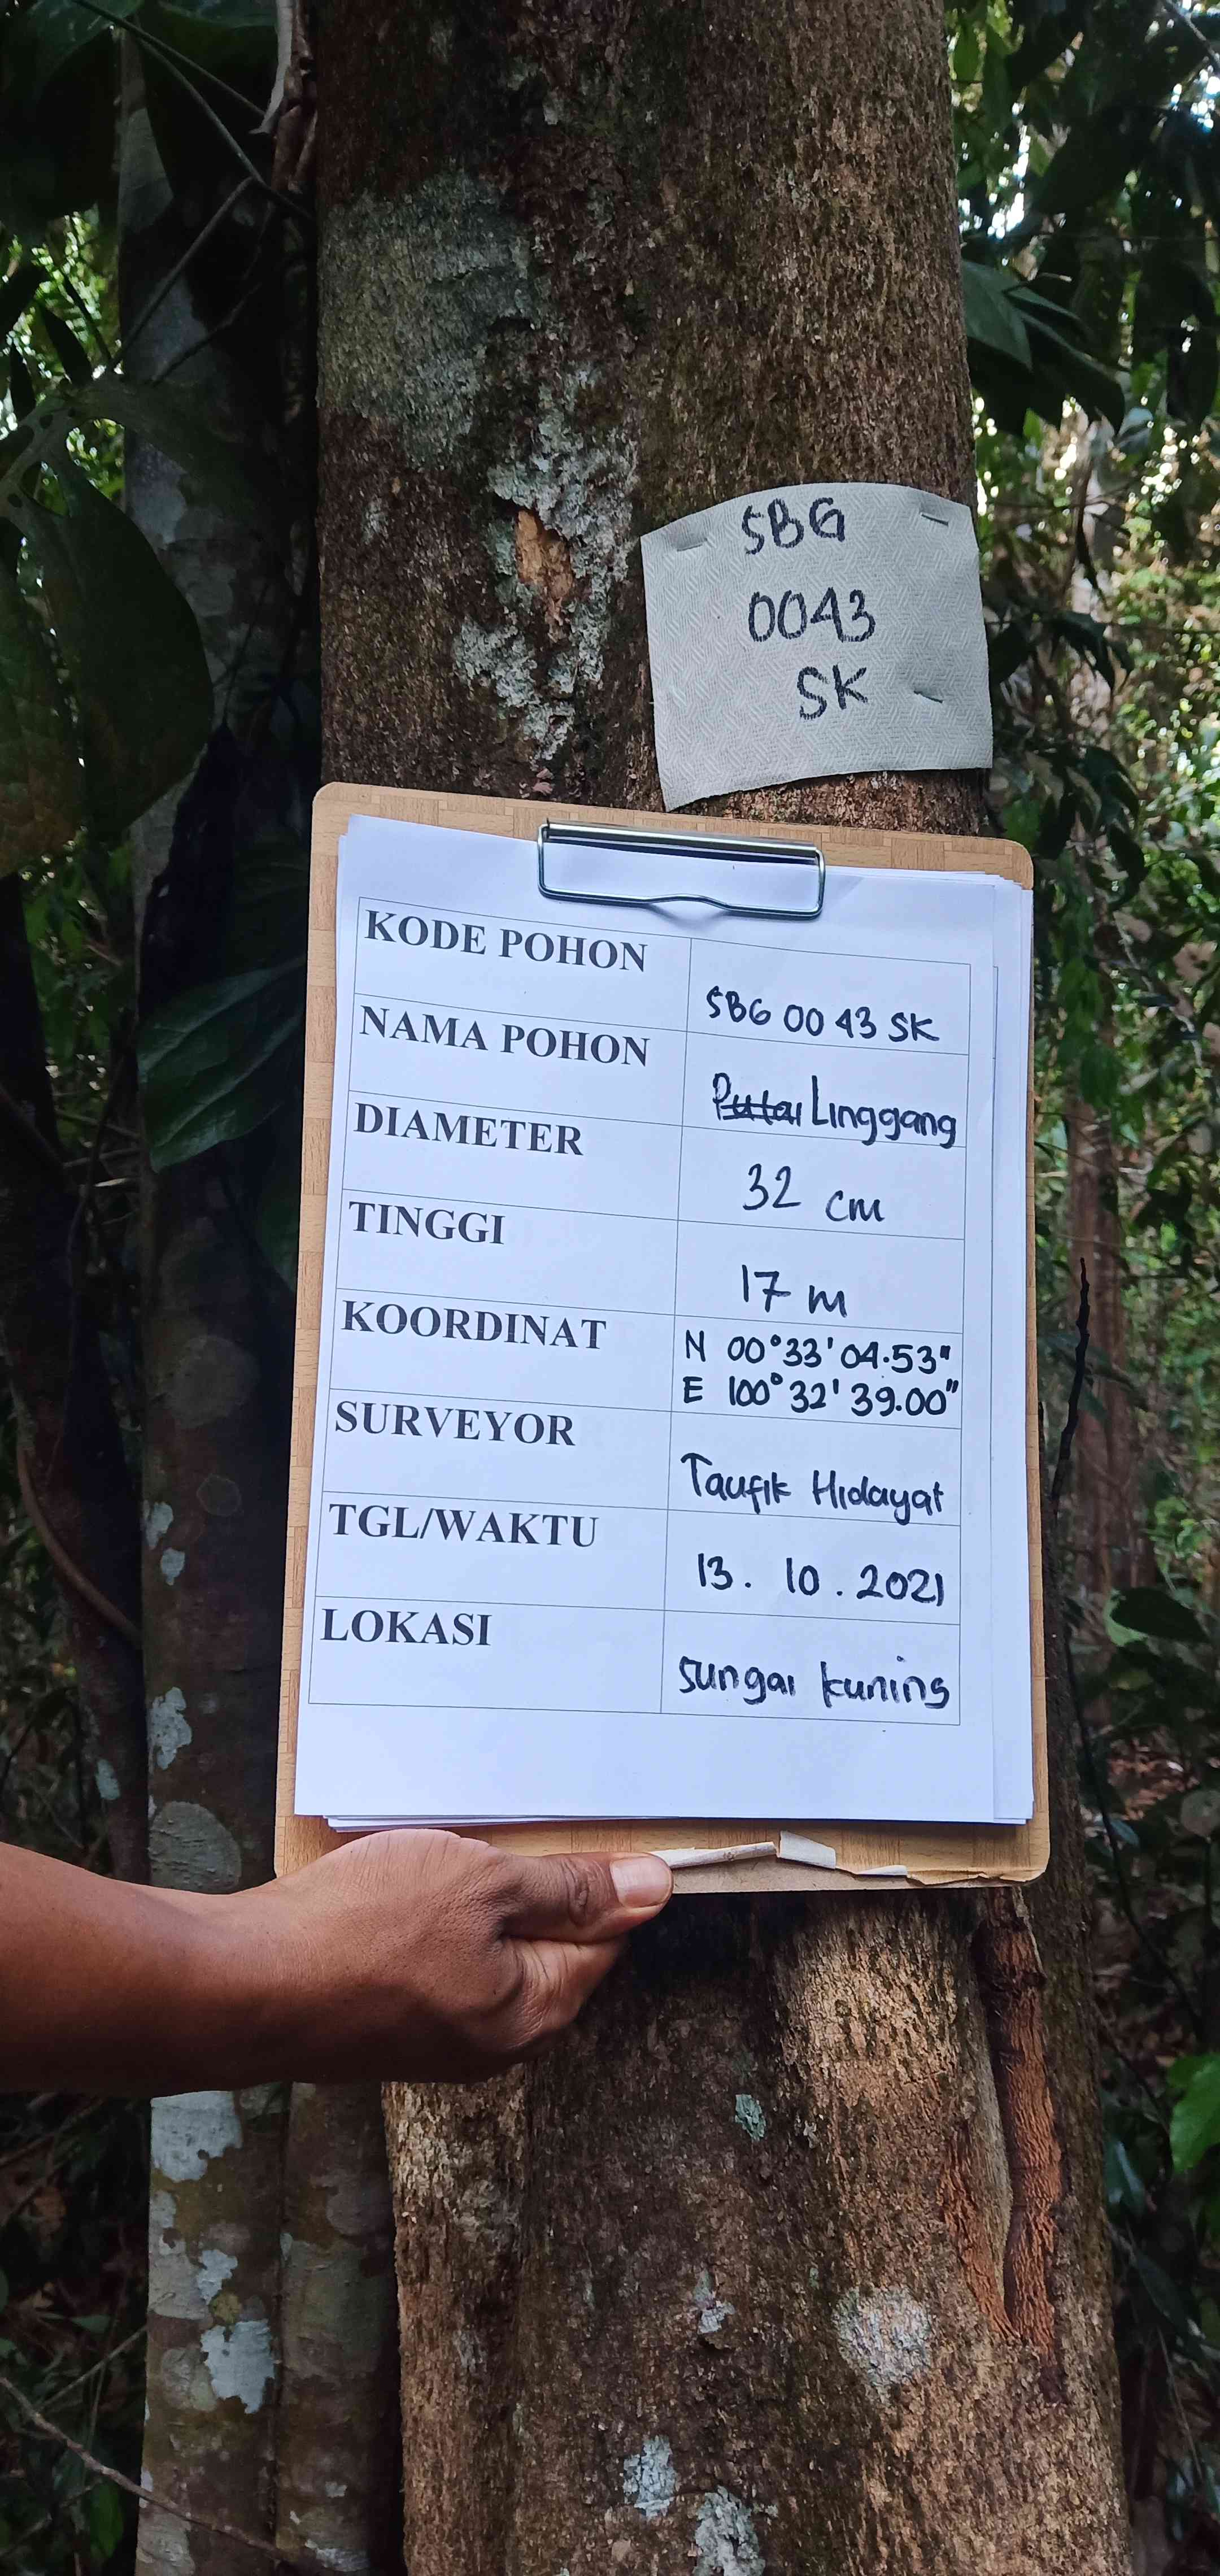 SBG
0043
SK
KODE POHON
SBG 0043 SK
NAMA POHON
Linggang
DIAMETER
32 cm
TINGGI
17 m
KOORDINAT
N 00°33'04.53"
E 100°32'39.00"
SURVEYOR
Taufik Hidayat
TGL/WAKTU
13. 10. 2021
LOKASI
sungai kuning